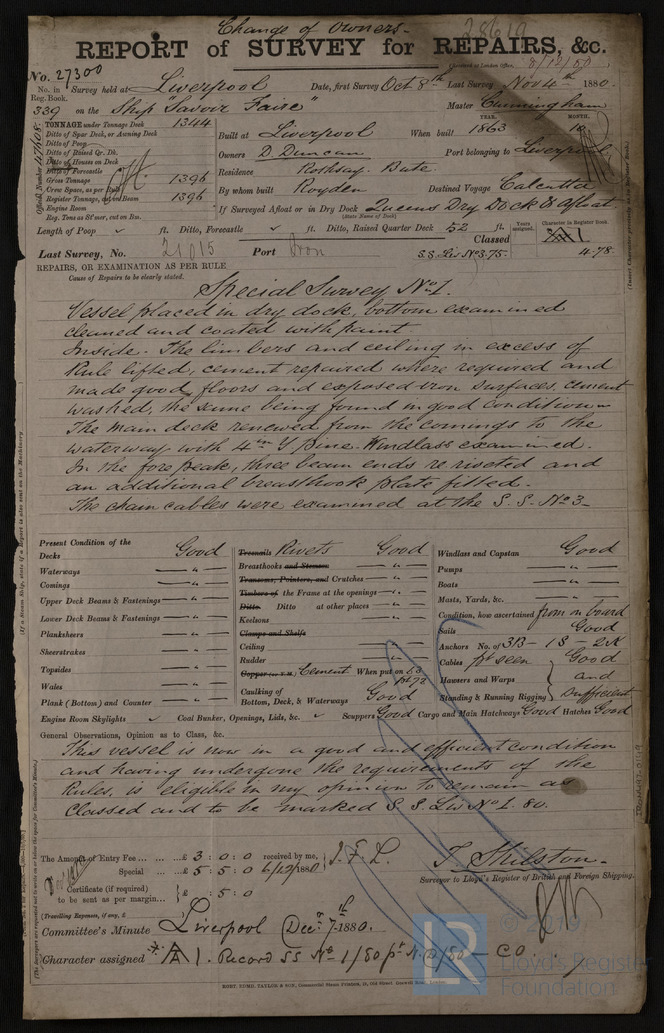 Change of Owners.
28619
REPORT of SURVEY for REPAIRS, &c.
8/12/80
No. 27300
No. in Reg. Book. Survey held at Liverpool Date, first Survey Oct 8th Last Survey Nov 4th 1880.
339 on the Ship "Savoir Faire" Master Cunningham
TONNAGE under Tonnage Deck 1344
Ditto of Spar Deck, or Awning Deck
Ditto of Poop
Ditto of Raised Qr. Dk.
Ditto of Houses on Deck
Ditto of Forecastle
Gross Tonnage 1396
Crew Space, as per Rule
Register Tonnage, cut on Beam 1396
Engine Room
Reg. Tons as St'mer, cut on Bm.
Built at Liverpool When built YEAR. 1863 MONTH. 10
Owners D. Duncan Port belonging to Liverpool
Residence Rothsay. Bute
By whom built Royden Destined Voyage Calcutta
If Surveyed Afloat or in Dry Dock Queens Dry Dock & Afloat
(State Name of Dock)
Length of Poop ✓ ft. Ditto, Forecastle ✓ ft. Ditto, Raised Quarter Deck 52 ft. Years assigned. Character in Register Book.
Last Survey, No. 21015 Port Iron Classed A1
SS Liv No 3.75. 4.78
REPAIRS, OR EXAMINATION AS PER RULE
Cause of Repairs to be clearly stated.
Special Survey No. 1.
Vessel placed in dry dock, bottom examined
cleaned and coated with paint
Inside. The limbers and ceiling in excess of
Rule lifted, cement repaired where required and
made good, floors and exposed iron surfaces, cement
washed, the same being found in good condition
The main deck renewed from the comings to the
waterway with 4 in Y. pine. Windlass examined.
In the fore peak, three beam ends re riveted and
an additional breasthook plate fitted.
The chain cables were examined at the S. S. No 3
Present Condition of the
Decks Good
Waterways — " —
Comings — " —
Upper Deck Beams & Fastenings — " —
Lower Deck Beams & Fastenings — " —
Planksheers — " —
Sheerstrakes — " —
Topsides — " —
Wales — " —
Plank (Bottom) and Counter — " —
Treenails Rivets Good
Breasthooks and Stemson — " —
Transoms, Pointers, and Crutches — " —
Timbers of the Frame at the openings — " —
Ditto. Ditto at other places — " —
Keelsons — " —
Clamps and Shelfs
Ceiling — " —
Rudder — " —
Copper (or Y.M.) Cement When put on 63
pt 78
Caulking of Bottom, Deck, & Waterways Good
Windlass and Capstan Good
Pumps — " —
Boats — " —
Masts, Yards, &c. — " —
Condition, how ascertained from on board
Sails Good
Anchors No. of 3B – 1S – 2K
Cables pt seen Good
Hawsers and Warps and
Standing & Running Rigging sufficient
Engine Room Skylights ✓ Coal Bunker, Openings, Lids, &c. ✓ Scuppers Good Cargo and Main Hatchways Good Hatches Good
General Observations, Opinion as to Class, &c.
This vessel is now in a good and efficient condition
and having undergone the requirements of the
Rules, is eligible in my opinion to remain as
Classed and to be marked S. S. Liv No 1. 80.
The Amount of Entry Fee ... £ 3 : 0 : 0 received by me, J. F. L.
Special ... £ 5 : 5 : 0 6/12/1880
Certificate (if required) to be sent as per margin... £ : 5 : 0
(Travelling Expenses, if any, £
T. Shilston.
Surveyor to Lloyd's Register of British and Foreign Shipping.
Committee's Minute Liverpool Decr 7th 1880.
Character assigned A 1. Record SS No 1/80 pt N.D/80 – CO
ROBT. EDMD. TAYLOR & SON
LR
© 2019
Lloyd's Register
Foundation